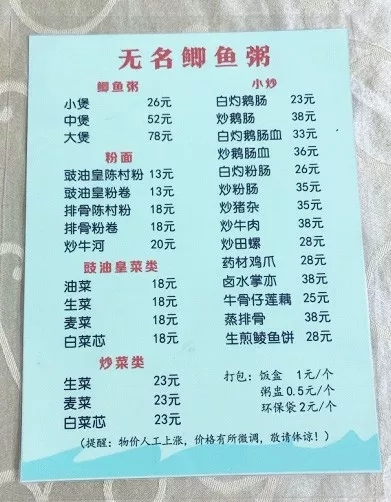 无名鲫鱼粥
鲫鱼粥
小煲 26元
中煲 52元
大煲 78元
粉面
豉油皇陈村粉 13元
豉油皇粉卷 13元
排骨陈村粉 18元
排骨粉卷 18元
炒牛河 20元
豉油皇菜类
油菜 18元
生菜 18元
麦菜 18元
白菜芯 18元
炒菜类
生菜 23元
麦菜 23元
白菜芯 23元
小炒
白灼鹅肠 23元
炒鹅肠 38元
白灼鹅肠血 33元
炒鹅肠血 36元
白灼粉肠 26元
炒粉肠 35元
炒猪杂 35元
炒牛肉 38元
炒田螺 28元
药材鸡爪 28元
卤水掌亦 38元
牛骨仔莲藕 25元
蒸排骨 38元
生煎鲮鱼饼 28元
打包：饭盒 1元/个
粥盅 0.5元/个
环保袋 2元/个
（提醒：物价人工上涨，价格有所微调，敬请体谅！）